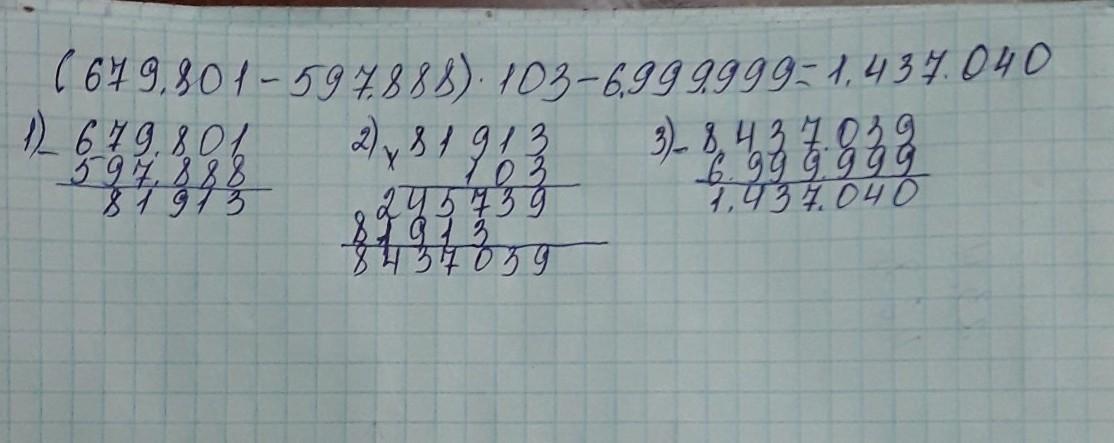 (679.801-597.888)·103-6.999.999=1.437.040
1) - 679.801
597.888
81913
2) x 81913
103
245739
81913
8437039
3) - 8.437.039
6.999.999
1.437.040